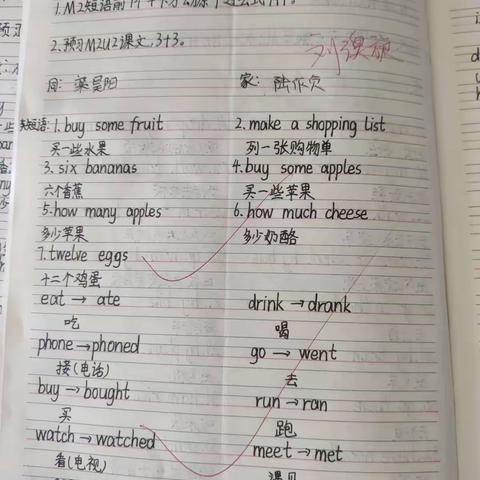 2.预习M2U2课文,3+3。
同: 梁昊阳 家:
英短语: 1. buy some fruit 2. make a shopping list
买一些水果 列一张购物单
3. six bananas 4. buy some apples
六个香蕉 买一些苹果
5. how many apples 6. how much cheese
多少苹果 多少奶酪
7. twelve eggs
十二个鸡蛋
eat → ate drink → drank
吃 喝
phone → phoned go → went
接(电话) 去
buy → bought run → ran
买 跑
watch → watched meet → met
看(电视) 遇见